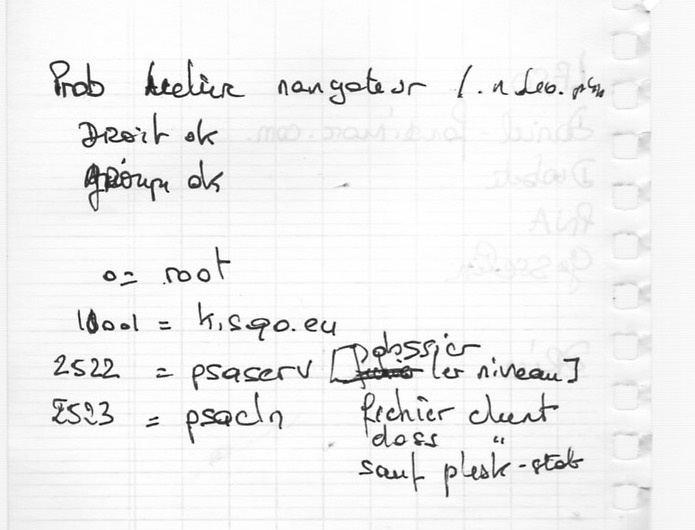 Prob Atelier navigateur
Droit ok
groupe ok
0 = root
10001 = kisqo.eu
2522 = psaserv [dossier 1er niveau]
2523 = psacln fichier client
doss "
sauf plesk-stat